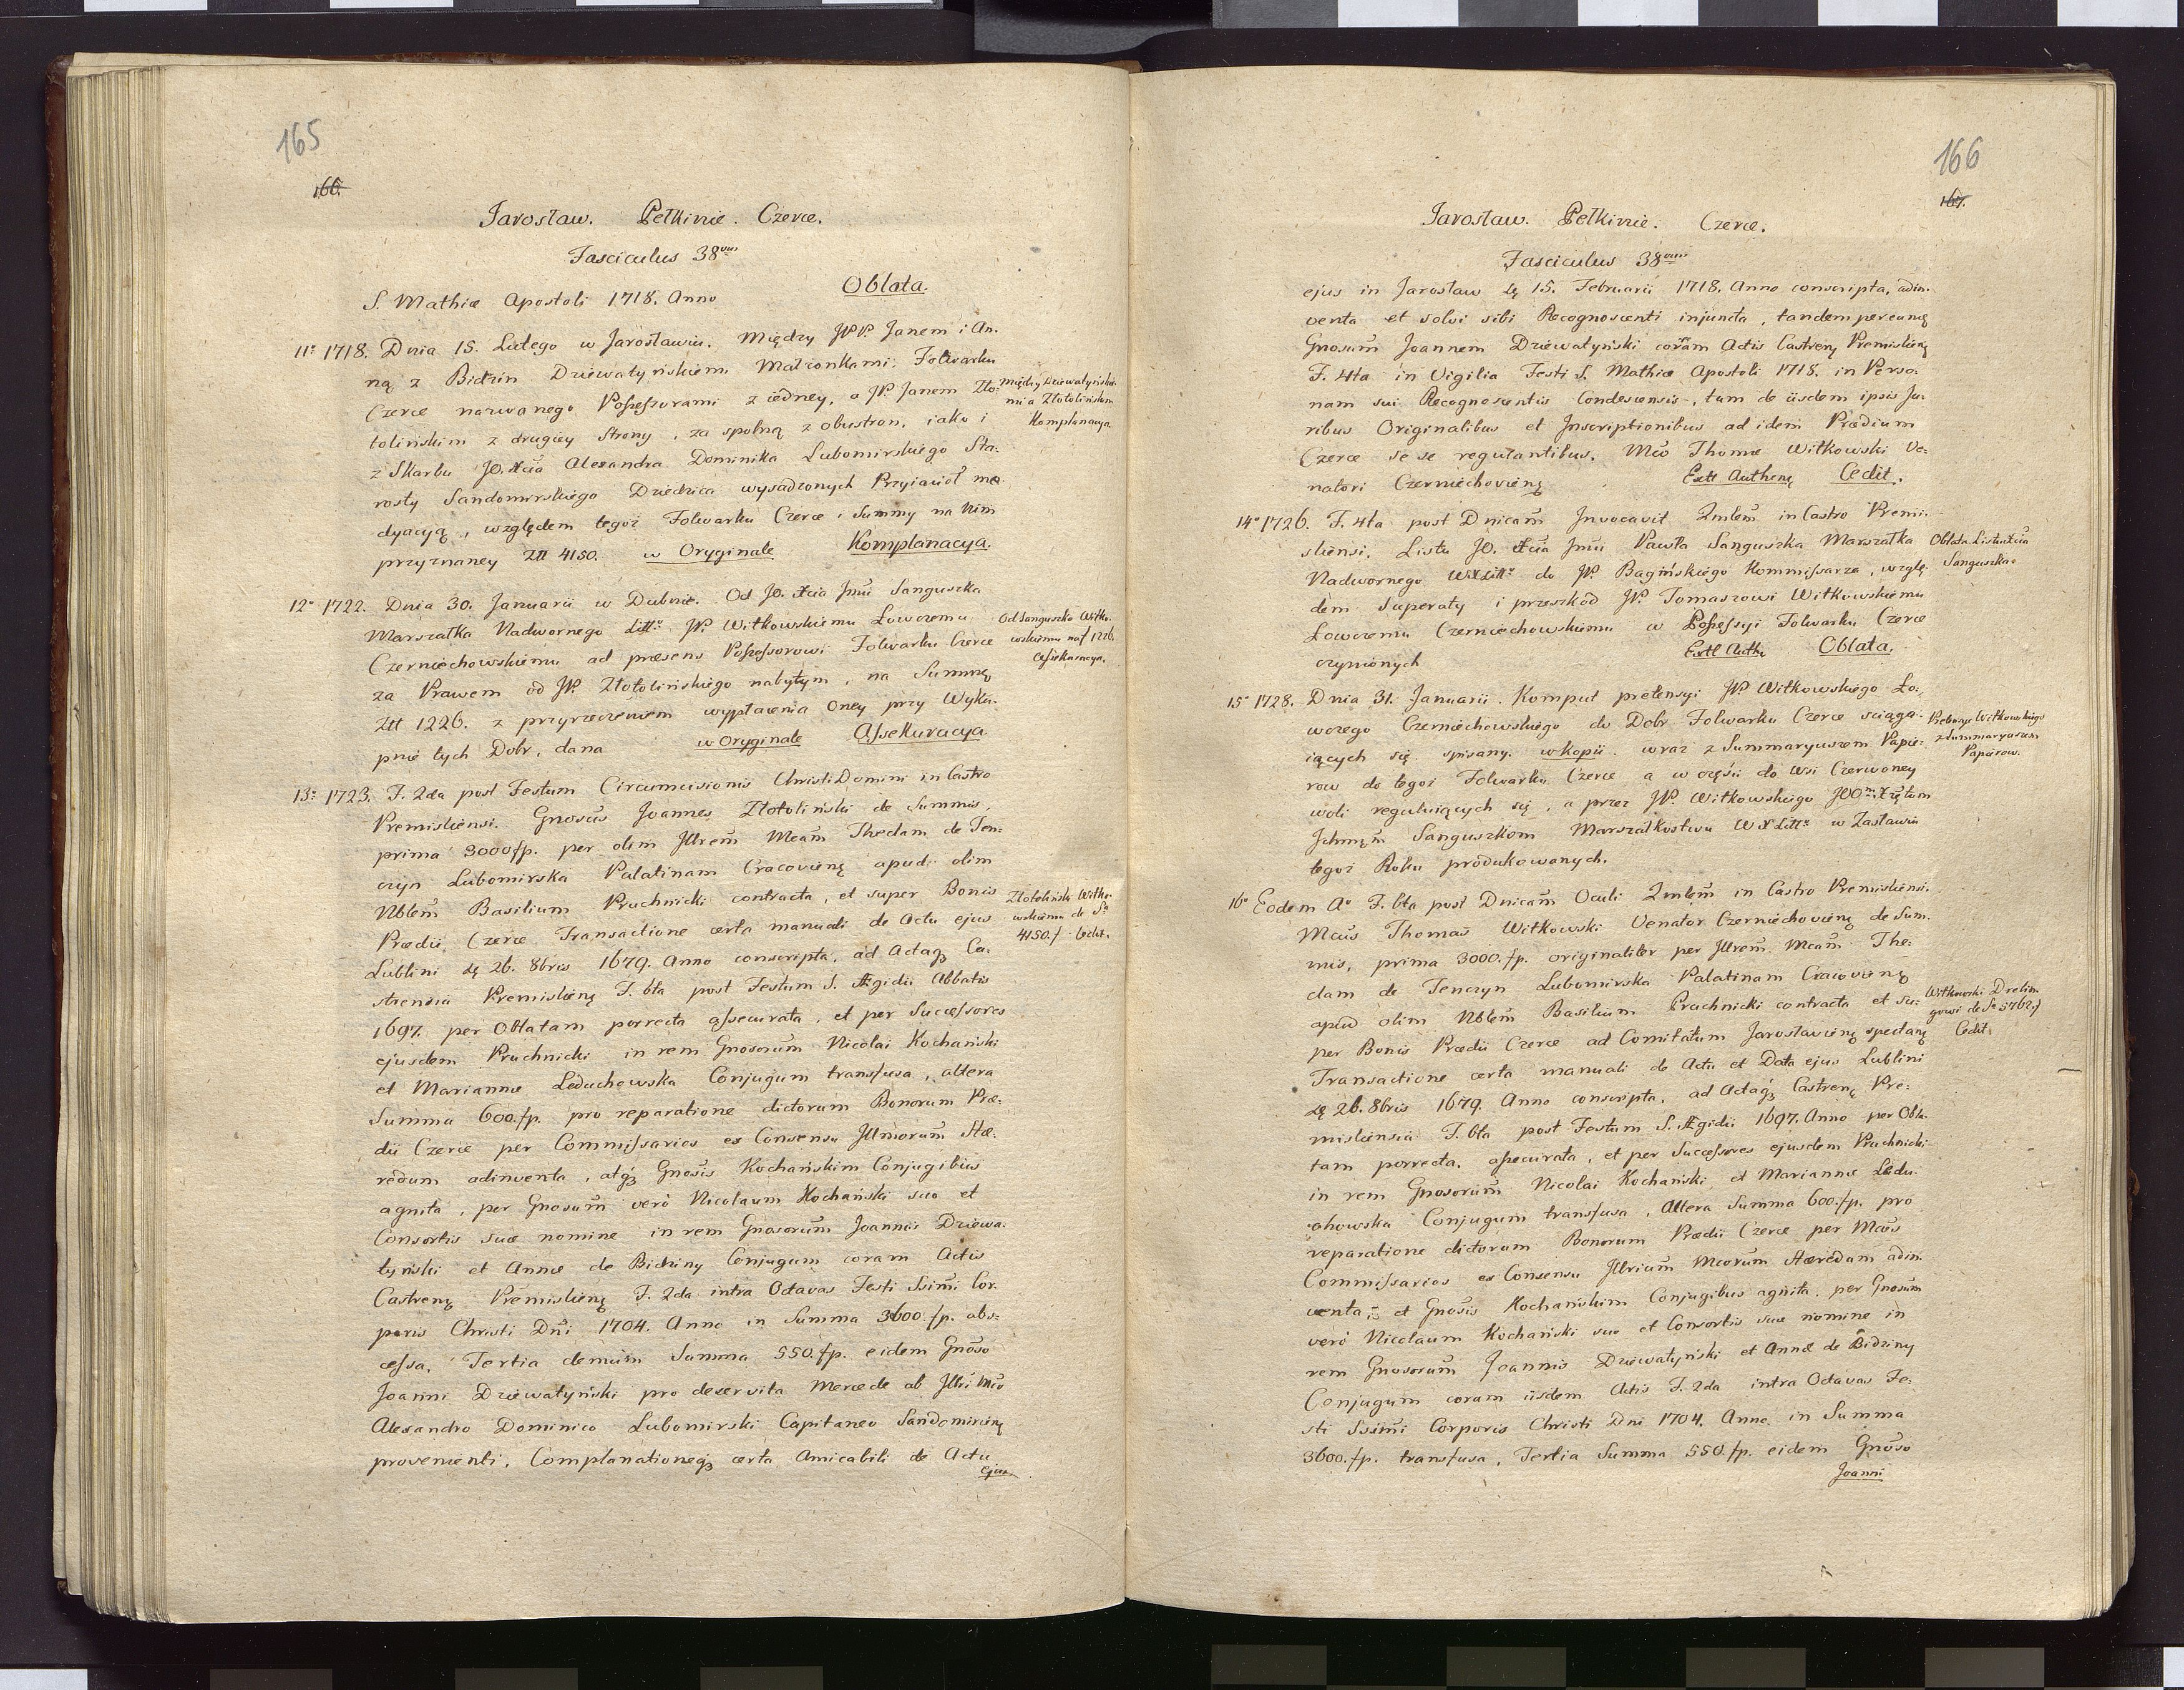 165
166.
Jarosław. Pełkinie. Czerce.
Fasciculus 38vus
S. Mathiæ Apostoli 1718. Anno Oblata.
11º 1718. Dnia 15. Lutego w Jarosławiu. Między JPP. Janem i An-
ną z Bidzin Dziewałtyńskiemi Małżonkami; Folwarku
Czerce nazwanego Possessorami z iedney, a JP. Janem Zło-
tolińskim z drugiey Strony, za spolną z obustron, iako i
z Skarbu JO. Xcia Alexandra Dominika Lubomirskiego Sta-
rosty Sandomirskiego Dziedzica wysadzonych Przyiacioł me-
dyacyą, względem tegoż Folwarku Czerce i Summy na Nim
przyznaney Złł 4150. w Oryginale Komplanacya.
Między Dziewałtyńskie-
mi a Złotolińskim
Komplanacya
12º 1722. Dnia 30. Januarii w Dubnie. Od JO. Xcia Jmći Sanguszka
Marszałka Nadwornego Litt: JP. Witkowskiemu Łowczemu
Czerniechowskiemu ad præsens Possessorowi Folwarku Czerce
za Prawem od JP. Złotolińskiego nabytym, na Summę
Złł 1226. z przyrzeczeniem wypłacenia Oney przy Wyku-
pnie tych Dobr, dana w Oryginale Assekuracya
Od Sanguszka Witko-
wskiemu na f 1226.
Assekuracya.
13º 1723. F. 2da post Festum Circumcisionis Christi Domini in Castro
Premisliensi. Gnosus Joannes Złotoliński de Summis,
prima 3000 fp. per olim Jllrem Mcam Thedam de Ten-
czyn Lubomirska Palatinam Cracovienę apud olim
Nblem Basilium Pruchnicki contracta, et super Bonis
Prædii Czerce Transactione certa manuali de Actu ejus
Lublini dę 26. 8bris 1679. Anno conscripta, ad Actaqꝫ Ca-
strensia Premislienę F. 6ta post Festum S. Ægidii Abbatis
1697. per Oblatam porrecta assecurata, et per Successores
ejusdem Pruchnicki in rem Gnosorum Nicolai Kochański
et Mariannæ Leduchowska Conjugum transfusa, altera
Summa 600. fp. pro reparatione dictorum Bonorum Præ-
dii Czerce per Commissarios ex Consensu Jllmorum Hæ-
redum adinventa, atqꝫ Gnosis Kochańskim Conjugibus
agnita, per Gnosum verò Nicolaum Kochański suo et
Consortis suæ nomine in rem Gnosorum Joannis Dziewa-
tyński et Annæ de Bidziny Conjugum coram Actis
Castrenę Premislienę F. 2da intra Octavas Festi Ssimi Cor-
poris Christi Dni 1704. Anno in Summa 3600. fp. abs-
cessa, Tertia demum Summa 550. fp. eidem Gnoso
Joanni Dziewatyński pro deservita Mercede ab Jllri Mco
Alexandro Dominico Lubomirski Capitaneo Sandomirienę
provenienti, Complanationeqꝫ certa Amicabili de Actu
ejus
Złotoliński Witko-
wskiemu de Sa
4150. f. Cedit.
166
167.
Jarosław. Pełkinie. Czerce.
Fasciculus 38vus
ejus in Jarosław dę 15. Februarii 1718. Anno conscripta, adin-
venta et solvi sibi Recognoscenti injuncta, tandem per eundę
Gnosum Joannem Dziewatyński coram Actis Castrenę Premislienę
F. 4ta in Vigilia Festi S. Mathiæ Apostoli 1718. in Perso-
nam sui Recognoscentis Condescensis, tum de iisdem ipsis Ju-
ribus Originalibus et Inscriptionibus ad idem Prædium
Czerce se se regulantibus. Mco Thomæ Witkowski Ve-
natori Czerniechovienę Extt Authenę Cedit.
14º 1726. F. 4ta post Dnicam Invocavit Qmlem in Castro Premi-
sliensi. Listu JO. Xcia Jmći Pawła Sanguszka Marszałka
Nadwornego WXLitt: do JP. Bagińskiego Kommissarza, wzglę-
dem Superaty i przeszkod JP. Tomaszowi Witkowskiemu
Łowczemu Czerniechowskiemu w Possessyi Folwarku Czerce
czynionych Extt Authę Oblata.
Oblata Listu Xcia
Sanguszka.
15º 1728. Dnia 31. Januarii. Komput pretensyi JP. Witkowskiego Ło-
wczego Czerniechowskiego do Dobr Folwarku Czerce sciąga-
iących się spisany. w kopii. wraz z Summaryuszem Papie-
row do tegoż Folwarku Czerce a w części do Wsi Czerwoney
woli reguluiących się, a przez JP. Witkowskiego JOm Xiężtom
Jchmęm Sanguszkom Marszałkostwu WXLitt: w Zasławiu
tegoż Roku produkowanych.
Pretensye Witkowskiego
z Summaryuszem
Papierow.
16º Eodem Aº F. 6ta post Dnicam Oculi Qmlem in Castro Premisliensi.
Mcus Thomas Witkowski Venator Czerniechovienę de Sum-
mis, prima 3000. fp. originaliter per Jllrem Mcam The-
dam de Tenczyn Lubomirska Palatinam Cracovienę
apud olim Nblem Basilium Pruchnicki contracta et su-
per Bonis Prædii Czerce ad Comitatum Jaroslavienę spectanę
Transactione certa manuali de Actu et Data ejus Lublini
dę 26. 8bris 1679. Anno conscripta, ad Actaqꝫ Castrenę Pre-
misliensia F. 6ta post Festum S. Ægidii 1697. Anno per Obla-
tam porrecta, assecurata, et per Successores ejusdem Pruchnicki
in rem Gnosorum Nicolai Kochański et Mariannæ Ledu-
chowska Conjugum transfusa, Altera Summa 600. fp. pro
reparatione dictorum Bonorum Prædii Czerce per Mcos
Commissarios ex Consensu Jllrium Mcorum Hæredum adin-
venta et Gnosis Kochańskim Conjugibus agnita, per Gnosum
verò Nicolaum Kochański suo et Consortis suæ nomine in
rem Gnosorum Joannis Dziewatyński et Annæ de Bidziny
Conjugum coram iisdem Actis F. 2da intra Octavas Fe-
sti Ssimi Corporis Christi Dni 1704. Anno in Summa
3600. fp. transfusa, Tertia Summa 550. fp. eidem Gnoso
Joanni
Witkowski Drelin-
gowi de Sa 5762 f
Cedit.